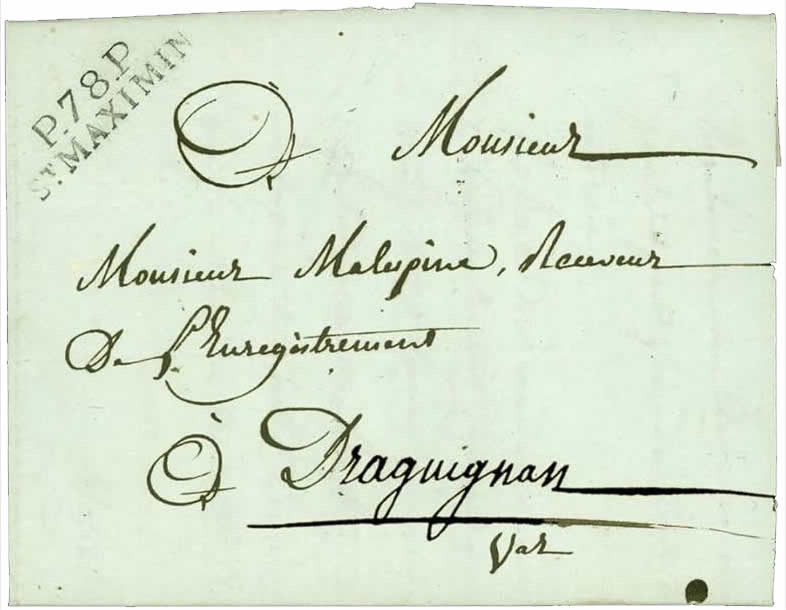 P.78.P
ST MAXIMIN
À Monsieur
Monsieur Malespine, Receveur
De l'Enregistrement
À Draguignan
Var